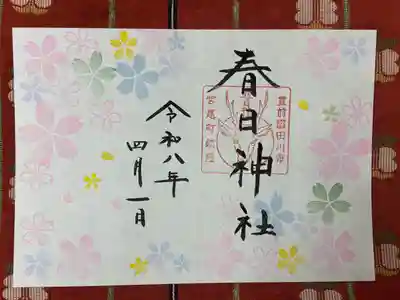 春日神社
豊前國田川市
宮尾町鎮座
令和八年
四月一日